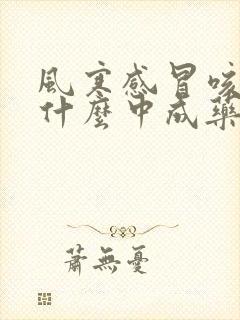 風寒感冒咳
什麼中成藥
蕭無憂